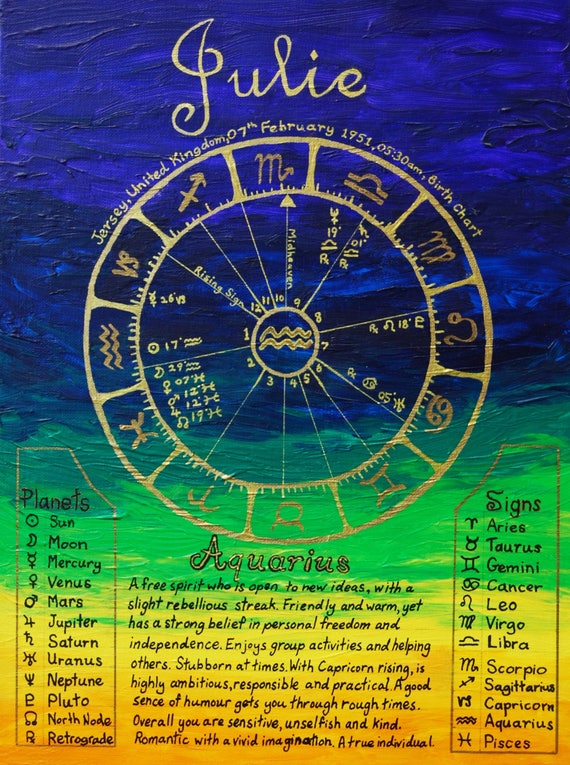 Julie
Jersey, United Kingdom, 07th February 1951, 05:30am, Birth Chart
♏ ♎ ♍ ♌ ♋ ♊ ♉ ♈ ♓ ♒ ♑ ♐
Midheaven
Rising Sign
12 11 10 9
8
7
6
5
4
3
2
1
♆
19°
♎
℞
♄
01°
♎
℞
☿ 26 ♑
℞ ♌ 18° ♇
℞ ♋ 05° ♅
☉ 17° ♒
☽ 29° ♒
♀ 07° ♓
♂ 12° ♓
♃ 12° ♓
☊ 19° ♓
Planets
☉ Sun
☽ Moon
☿ Mercury
♀ Venus
♂ Mars
♃ Jupiter
♄ Saturn
♅ Uranus
♆ Neptune
♇ Pluto
☊ North Node
℞ Retrograde
Aquarius
A free spirit who is open to new ideas, with a
slight rebellious streak. Friendly and warm, yet
has a strong belief in personal freedom and
independence. Enjoys group activities and helping
others. Stubborn at times. With Capricorn rising, is
highly ambitious, responsible and practical. A good
sence of humour gets you through rough times.
Overall you are sensitive, unselfish and kind.
Romantic with a vivid imagination. A true individual.
Signs
♈ Aries
♉ Taurus
♊ Gemini
♋ Cancer
♌ Leo
♍ Virgo
♎ Libra
♏ Scorpio
♐ Sagittarius
♑ Capricorn
♒ Aquarius
♓ Pisces